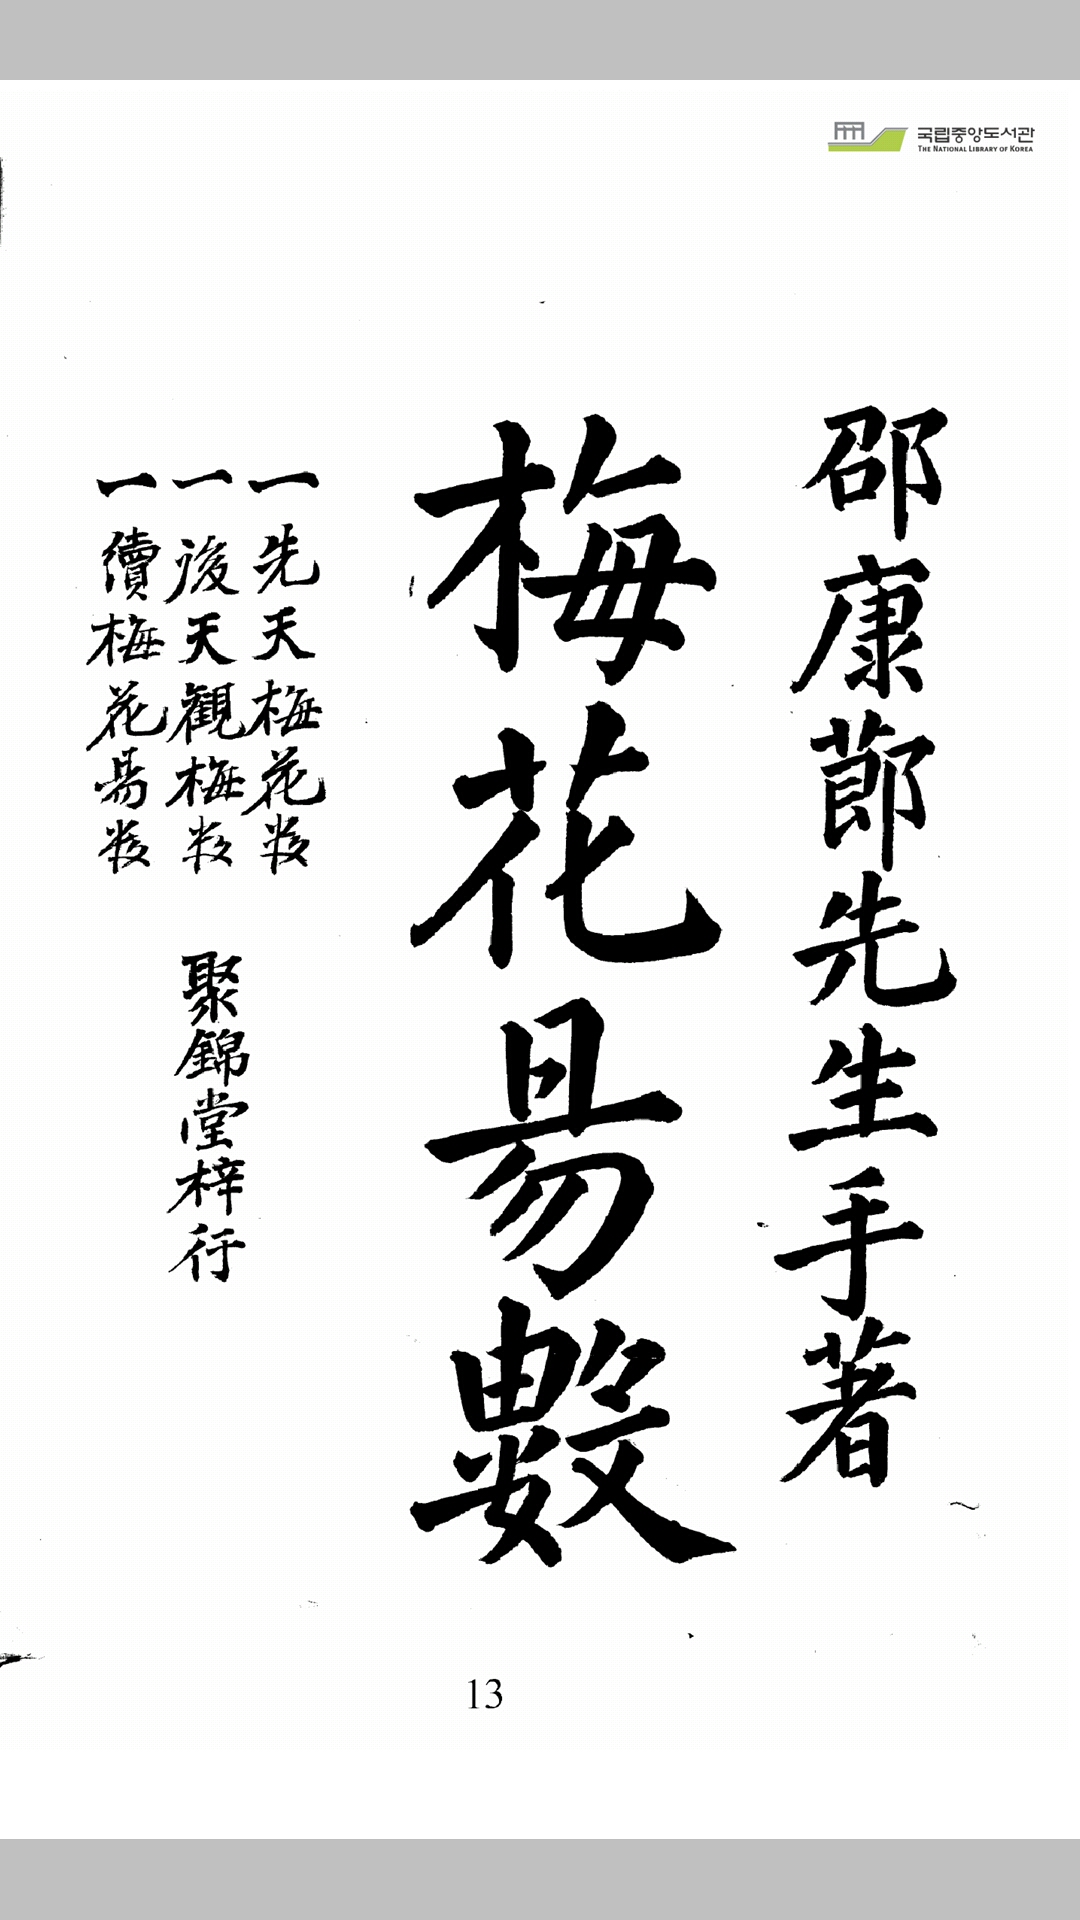 국립중앙도서관
THE NATIONAL LIBRARY OF KOREA
邵康莭先生手著
梅花昜數
一先天梅花数
一後天觀梅数
一續梅花昜数
聚錦堂梓行
13